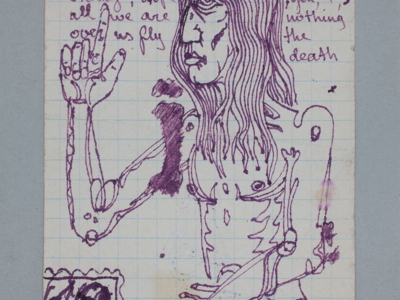 all we are nothing
over us fly the
death